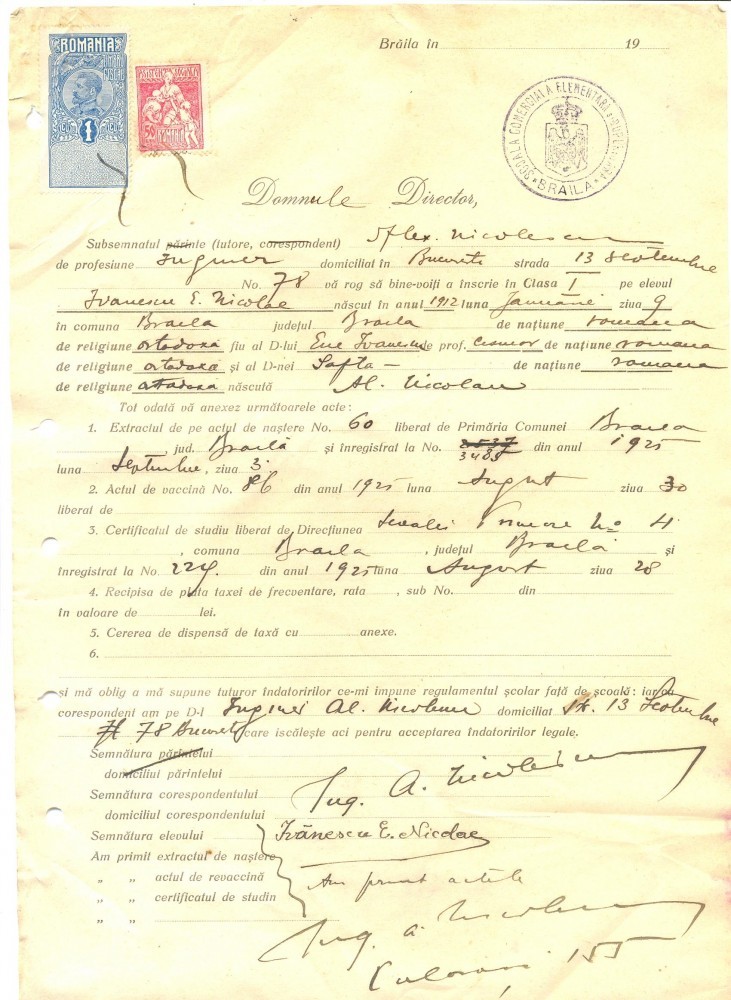 Brăila în 19
ROMANIA
TIMBRU FISCAL
1
ASISTENȚA SOCIALĂ
50
BANI
ȘCOALA COMERCIALĂ ELEMENTARĂ
BRAILA
Domnule Director,
Subsemnatul părinte (tutore, corespondent) Alex. Nicolescu
de profesiune Inginer domiciliat în București strada 13 Septembrie
No. 78 vă rog să bine-voiți a înscrie în Clasa I pe elevul
Ivanescu E. Nicolae născut în anul 1912 luna Januarie ziua 9
în comuna Braila județul Braila de națiune romana
de religiune ortodoxă fiu al D-lui Ene Ivanescu de prof. cismar de națiune romana
de religiune ortodoxă și al D-nei Safta - de națiune romana
de religiune ortodoxă născută Al. Nicolau
Tot odată vă anexez următoarele acte:
1. Extractul de pe actul de naștere No. 60 liberat de Primăria Comunei Braila
jud. Brailă și înregistrat la No. 3489 din anul 1925
luna Septembrie, ziua 3.
2. Actul de vaccină No. 86 din anul 1925 luna August ziua 30
liberat de
3. Certificatul de studiu liberat de Direcțiunea Scoalei Primare No 4
, comuna Braila, județul Brailă și
înregistrat la No. 224. din anul 1925 luna August ziua 28
4. Recipisa de plata taxei de frecventare, rata , sub No. din
în valoare de lei.
5. Cererea de dispensă de taxă cu anexe.
6.
și mă oblig a mă supune tuturor îndatoririlor ce-mi impune regulamentul școlar față de școală: iar ca
corespondent am pe D-l Inginer Al. Nicolescu domiciliat Str. 13 Septembrie
78 București care iscălește aci pentru acceptarea îndatoririlor legale.
Semnătura părintelui
domiciliul părintelui
Semnătura corespondentului Ing. A. Nicolescu
domiciliul corespondentului
Semnătura elevului Ivănescu E. Nicolae
Am primit extractul de naștere
„ „ actul de revaccină Am primit actele
„ „ certificatul de studin
„ „ Ing. A. Nicolescu
155